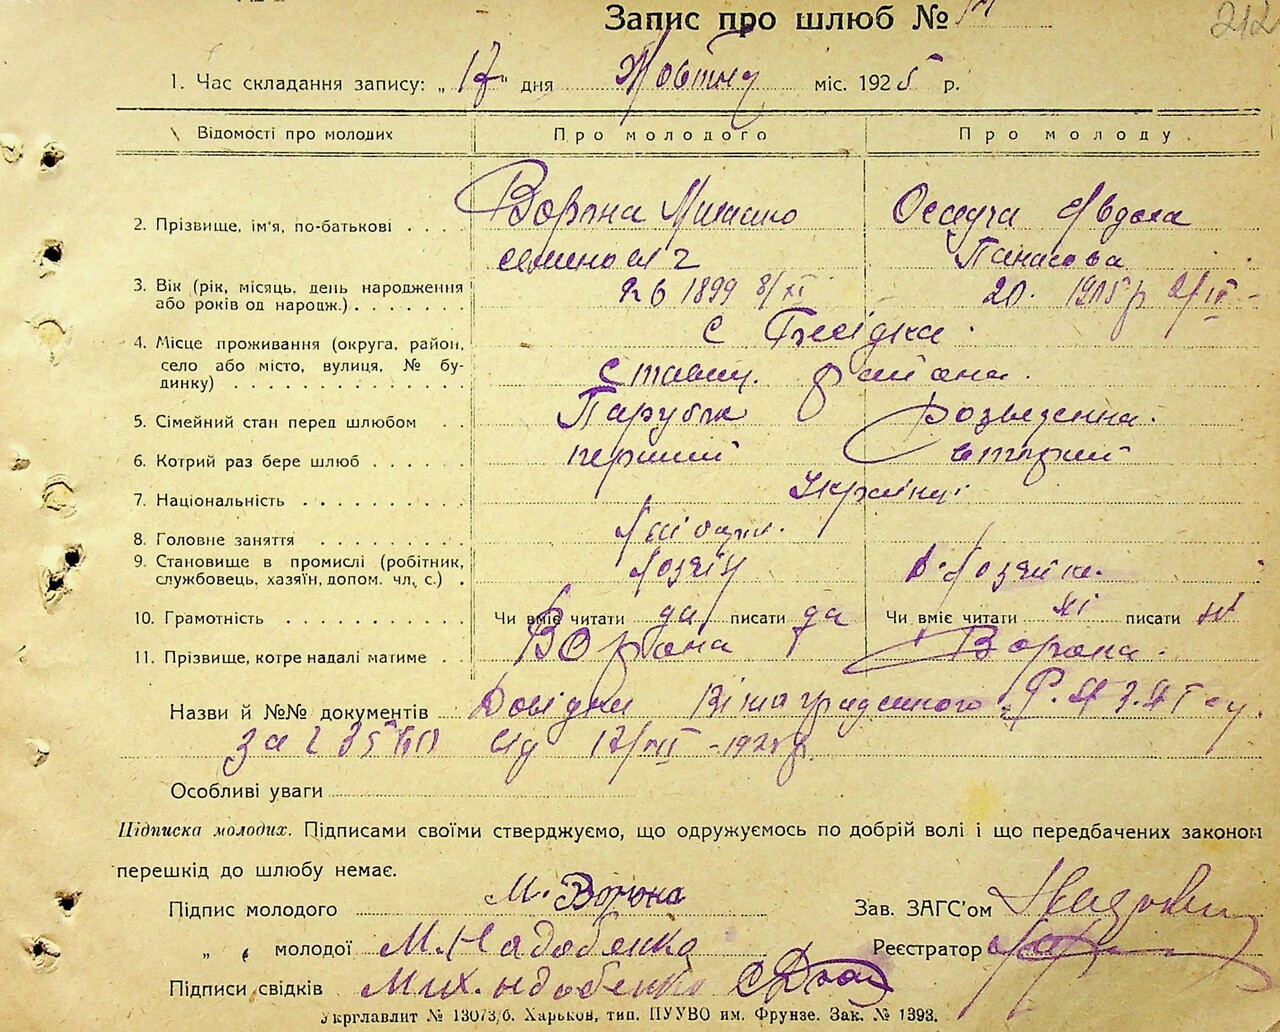 Запис про шлюб №
212
1. Час складання запису: „ 17 " дня Жовтня міс. 1925 р.
Відомості про молодих Про молодого Про молоду
2. Прізвище, ім'я, по-батькові Ворона Михайло Осадча Явдоха
Панасова
3. Вік (рік, місяць, день народження
або років од народж.) 26 1899 8/XI 20. 1905 р 2/IX
4. Місце проживання (округа, район, с
село або місто, вулиця, № бу-
динку) Ставищ. района.
5. Сімейний стан перед шлюбом Парубок Розведенна.
6. Котрий раз бере шлюб перший вторий
7. Національність Українці
8. Головне заняття Хлібороб.
9. Становище в промислі (робітник,
службовець, хазяїн, допом. чл. с.) Хозяїн
10. Грамотність Чи вміє читати да писати да Чи вміє читати ні писати ні
11. Прізвище, котре надалі матиме Ворона Ворона.
Назви й №№ документів Довідки
за від
Особливі уваги
Підписка молодих. Підписами своїми стверджуємо, що одружуємось по добрій волі і що передбачених законом
перешкід до шлюбу немає.
Підпис молодого М. Ворона Зав. ЗАГС'ом
„ „ молодої М. Надобенко Реєстратор
Підписи свідків Мих. Надобенко
Укрглавлит № 13073/б. Харьков, тип. ПУУВО им. Фрунзе. Зак. № 1393.